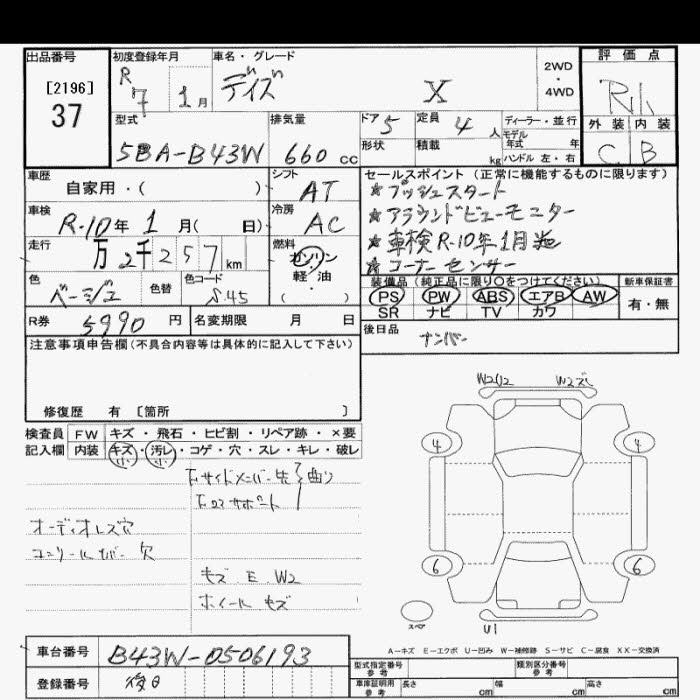 出品番号 初度登録年月 車名・グレード 2WD・4WD 評価点
[2196] 37 R 7 1月 デイズ X
型式 排気量 ドア 5 定員 4人 ディーラー・並行 外装 内装
5BA-B43W 660cc 形状 積載 kg モデル年式 年 ハンドル 左・右 C B
車歴 シフト セールスポイント (正常に機能するものに限ります)
自家用・( ) AT ★プッシュスタート
車検 冷房 ★アラウンドビューモニター
R-10年 1月( 日) AC ★車検R-10年1月迄
走行 燃料 ★コーナーセンサー
万 2千257km ガソリン・軽・油 ( )
色 色替 色コード 装備品 (純正品に限り○をつけてください) 新車保証書
ベージュ S.45 PS PW ABS エアB AW 有・無
SR ナビ TV カワ
R券 5990円 名変期限 月 日 後日品 ナンバー
注意事項申告欄(不具合内容等は具体的に記入して下さい)
修復歴 有 [箇所 ]
W2U2 W2
検査員 FW キズ・飛石・ヒビ割・リペア跡・×要
記入欄 内装 キズ・汚レ・コゲ・穴・スレ・キレ・破レ
小 小
4 4
Fサイドメンバー先 曲り
Fロアサポート
オーディオレス穴
穴
6 6
キズ E W2
ホイールキズ
スペア U1
A-キズ E-エクボ U-凹み W-補修跡 S-サビ C-腐食 XX-交換済
車台番号 B43W-0506193
型式指定番号 参考 類別区分番号 参考
登録番号 後日
車庫証明用 参考 長さ cm 幅 cm 高さ cm